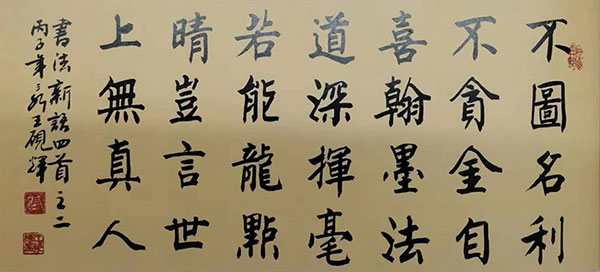 不圖名利
不貪金自
喜翰墨法
道深揮毫
若能龍點
晴豈言世
上無真人
書法新語四首之二
丙子年
王硯輝